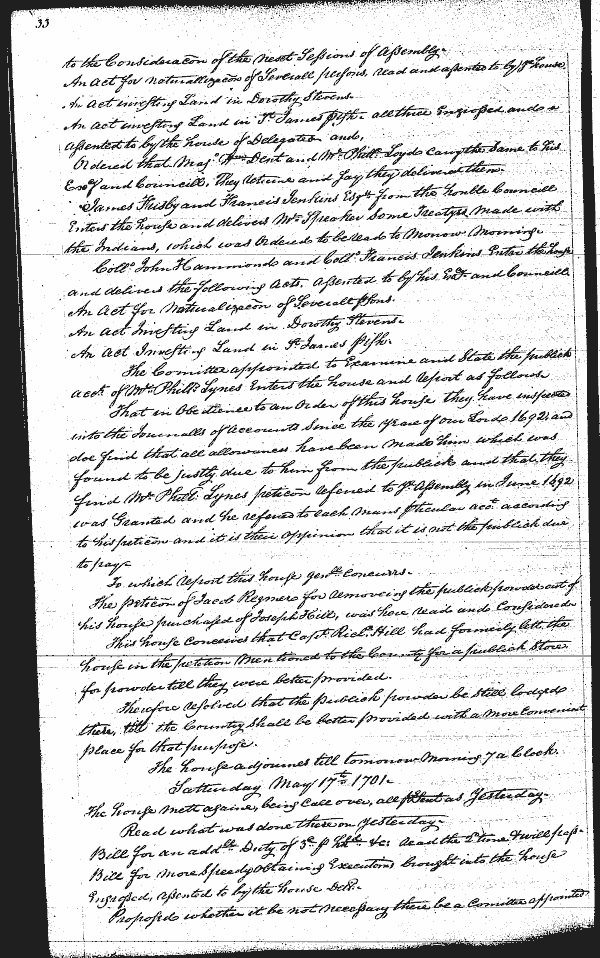 33
to the Consideracon of the next Sessions of Assembly.
An Act for naturallizacon of Severall persons, read and assented to by ye house
An Act investing Land in Dorothy Stevens.
An Act investing Land in St. James pish. all three Engrossed and
assented to by the house of Delegates and,
Ordered that Maj. Dent and Mr. Phill. Loyd carry the Same to his
Excy and Councill. They returne and say they delivered them.
James and Francis Jenkins Esqrs from the honble Councill
Enters the house and delivers Mr. Speaker Some Treatys made with
the Indians, which was Ordered to be read to Morrow Morning.
Collo. John Hammond and Collo. Francis Jenkins Enter the house
and delivers the following Acts. Assented to by his Excy. and Councill.
An Act for Naturalizacon of Severall psons.
An Act Investing Land in Dorothy Stevens.
An Act Investing Land in St. James pish.
The Comittee appointed to Examine and State the publick
acct. of Mr. Phill. Lynes Enters the house and report as follows
That in Obedience to an Order of this house they have inspected
into the Journalls of Accounts Since the year of our Lord 1692. and
doe find that all allowances have been made him which was
found to be justly due to him from the publick and that they
find Mr. Phill. Lynes peticon refered to ye Assembly in June 1692
was Granted and he refered to each mans pticular acct. according
to his peticon and it is their oppinion that it is not the publick due
to pay.
To which report this house genrll Concurrs.
The peticon of Jacob Regnier for removeing the publick powder out of
his house purchased of Joseph Hill, was here read and Considered
This house Conceives that Capt. Richd. Hill had formerly lett the
house in the petition mentioned to the Country for a publick Store
for powder till they were better provided.
Therefore resolved that the publick powder be Still lodged
there, till the Country Shall be better provided with a more Convenient
place for that purpose.
The house adjournes till tomorrow Morning 7 a Clock.
Satturday May 17th 1701.
The house mett againe, being Call over, all psent as Yesterday.
Read what was done there on Yesterday.
Bill for an addll. Duty of 3d. p &c: read the time & will pass.
Bill for more Speedy obtaining Executions brought into the house
Engrossed, assented to by the house Del.
Proposed whether it be not necessary there be a Comittee appointed